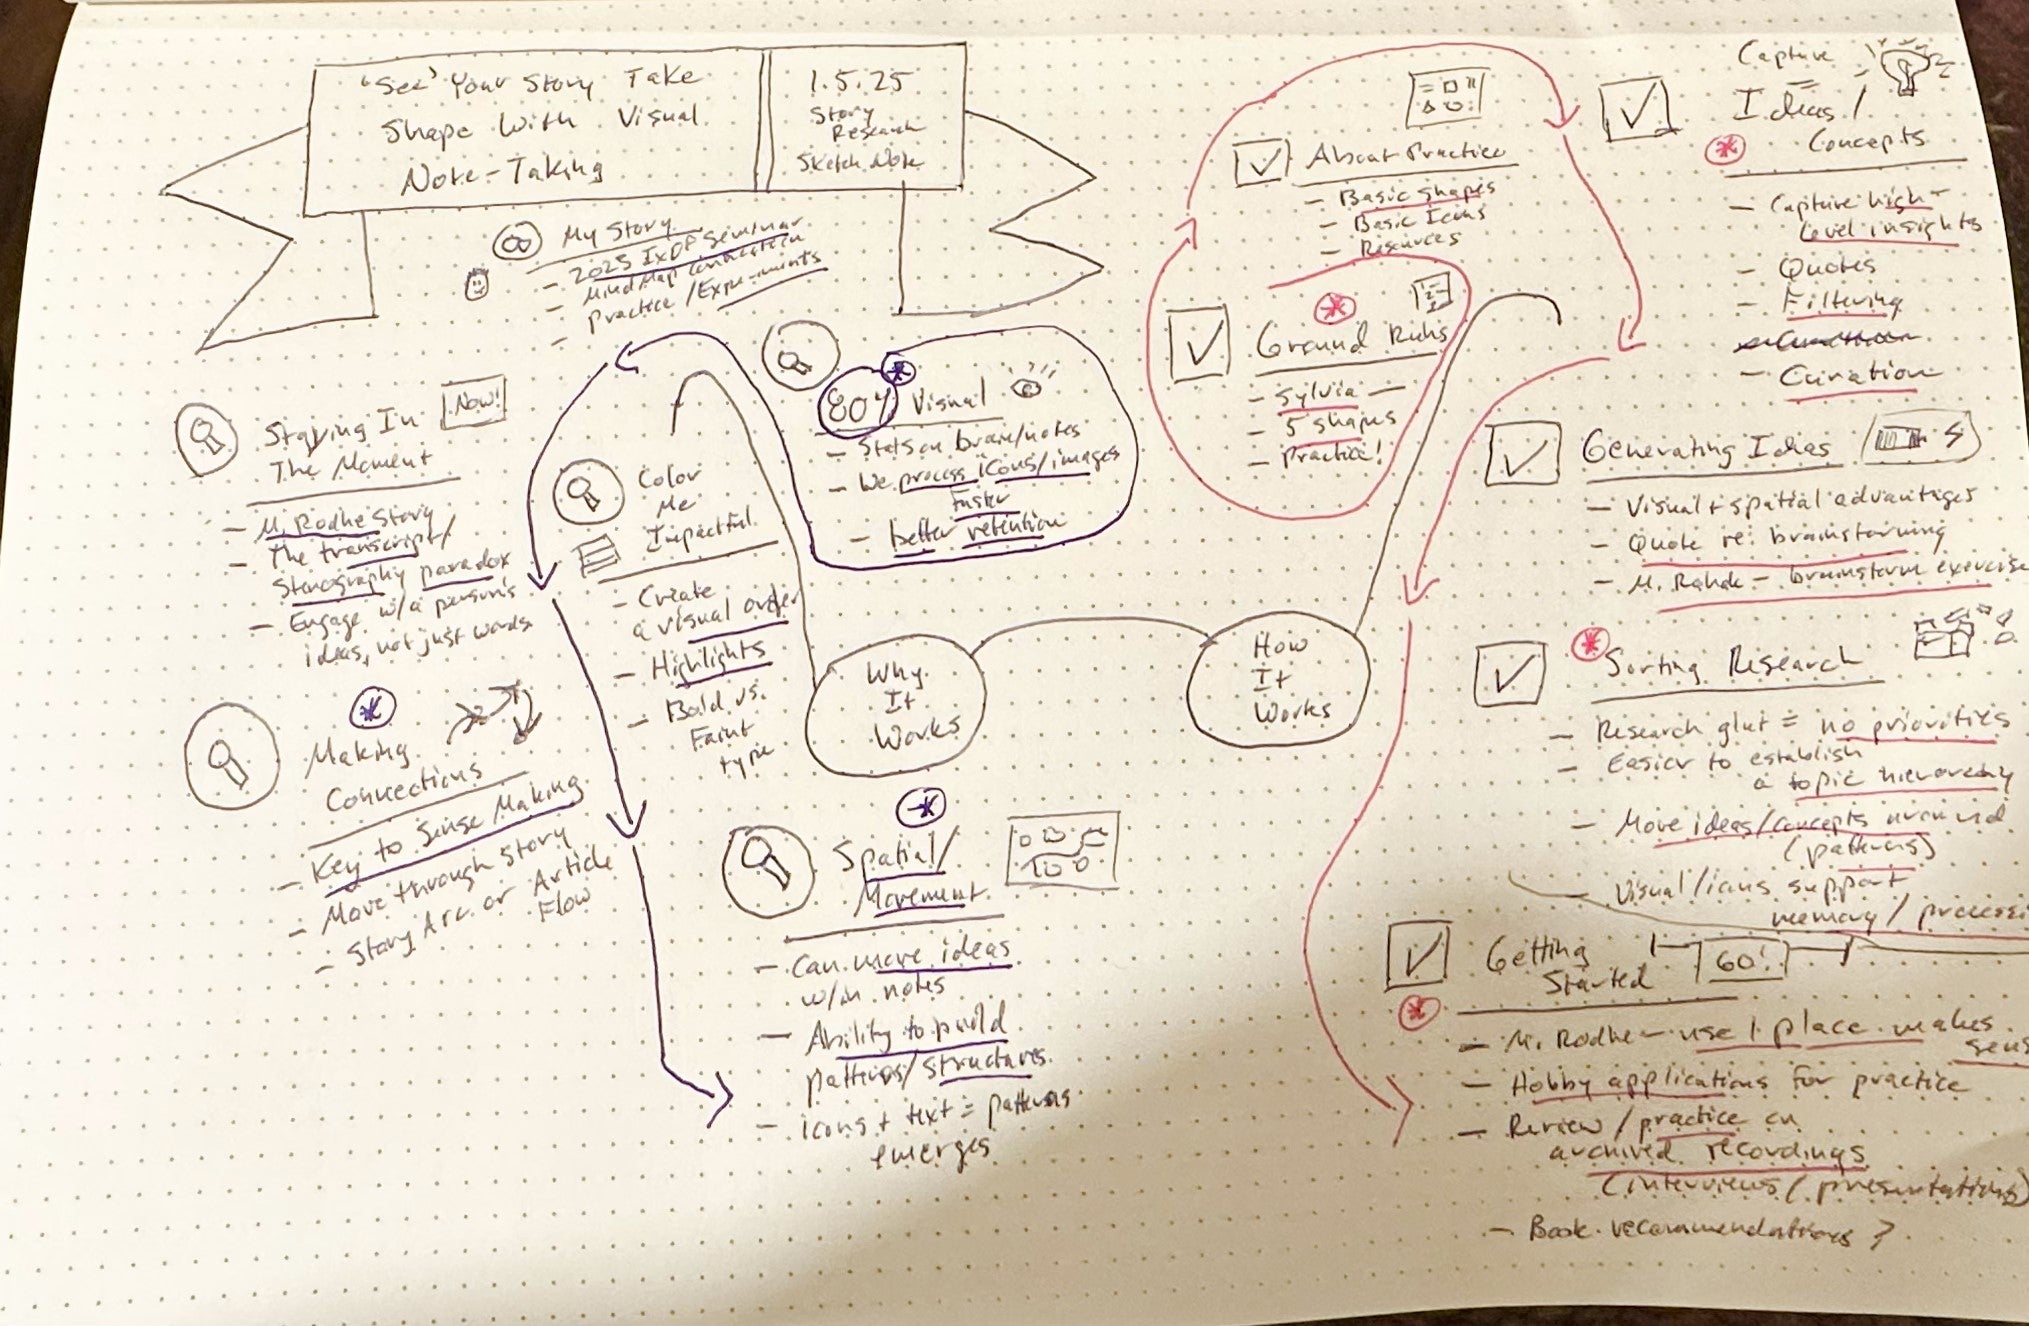 "See" Your Story Take
Shape With Visual
Note-Taking
1.5.25
Story
Research
Sketch Note
My Story
- 2025 IxDF Seminar
- Mind Map Connection
- Practice / Experiments
-
80% Visual
- Stats on brain/notes
- We process icons/images
faster
- better retention
Color
Me
Impactful
- Create
a visual order
- Highlights
- Bold vs.
Faint
type
Staying In
The Moment
Now!
- M. Rodhe Story
- The transcript/
Stenography paradox
- Engage w/a person's
ideas, not just words
Making
Connections
- Key to Sense Making
- Move through Story
- Story Arc or Article
Flow
Spatial/
Movement
- Can move ideas
w/in notes
- Ability to build
patterns/structures
- icons + text = patterns
emerges
Why
It
Works
How
It
Works
About Practice
- Basic shapes
- Basic Icons
- Resources
Ground Rules
- Sylvia -
- 5 shapes
- Practice!
Capture
Ideas/
Concepts
- Capture high-
level insights
- Quotes
- Filtering
- Curation
Generating Ideas
- Visual + spatial advantages
- Quote re: brainstorming
- M. Rohde - brainstorm exercise
Sorting Research
- Research glut = no priorities
- Easier to establish
a topic hierarchy
- Move ideas/concepts around
(patterns)
- Visual/icons support
memory/
Getting
Started
60!
- M. Rodhe - use 1 place makes
- Hobby applications for practice
- Review/practice on
archived recordings
(interviews/presentations)
- Book recommendations?